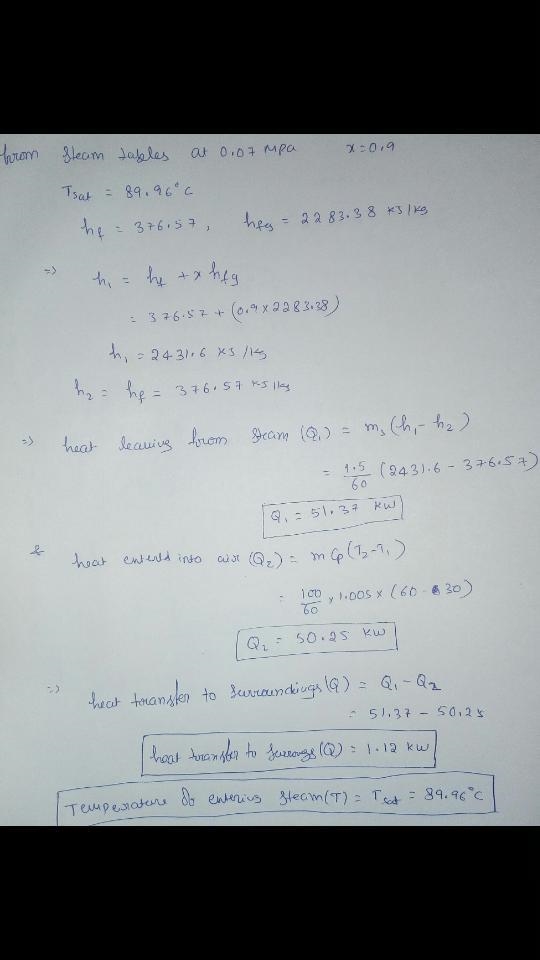 from Steam tables at 0.07 Mpa x = 0.9
Tsat = 89.96°C
hf = 376.57, hfg = 2283.38 KJ/kg
=> h1 = hf + x hfg
= 376.57 + (0.9 x 2283.38)
h1 = 2431.6 KJ/kg
h2 = hf = 376.57 KJ/kg
=> heat leaving from Steam (Q1) = ms (h1 - h2)
= 1.5/60 (2431.6 - 376.57)
Q1 = 51.37 KW
& heat enterd into air (Q2) = m Cp (T2 - T1)
= 100/60 x 1.005 x (60 - 30)
Q2 = 50.25 KW
=> heat transfer to Surroundings (Q) = Q1 - Q2
= 51.37 - 50.25
heat transfer to (Q) = 1.12 KW
Temperature Of entering Steam (T) = Tsat = 89.96°C